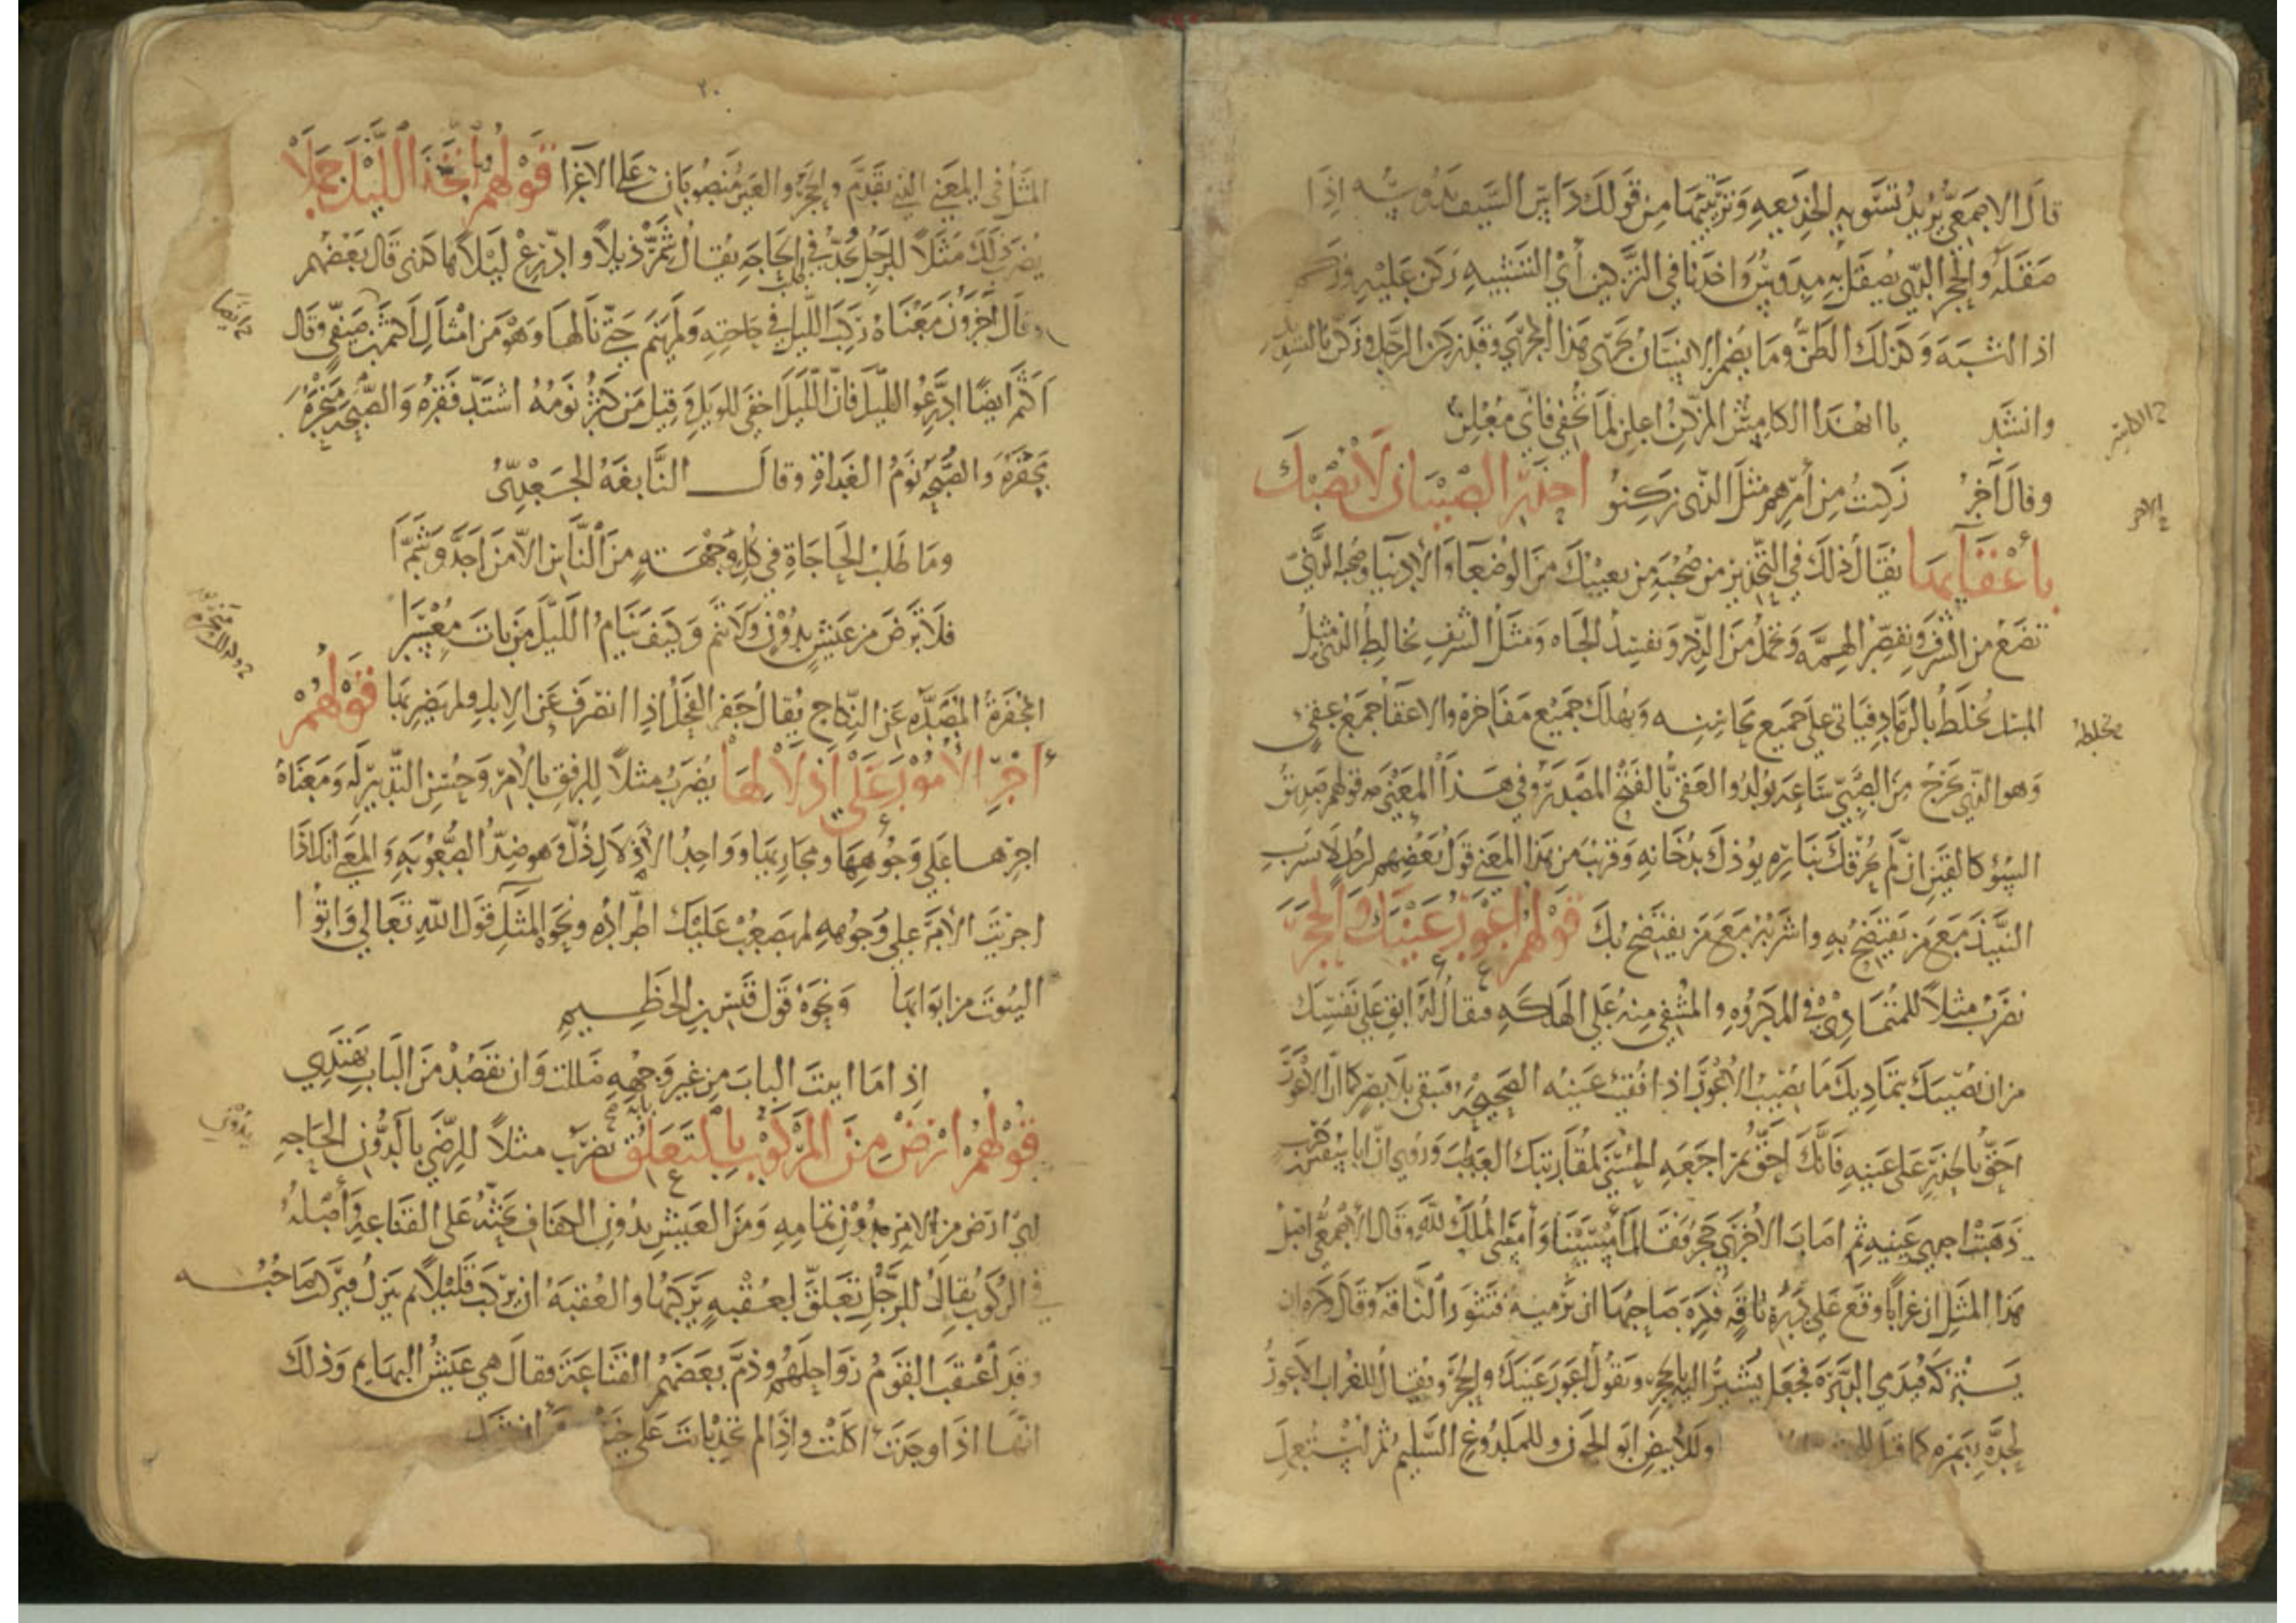 قال الاصمعي يريد تسويه الخديعه وتزيينها من قولك داس السيف يدوسه اذا
صقله والحجر الذي يصقل به مدوس واخذنا في التزكين أي التشبيه زكن عليه وزكم
اذا التشبه وكذلك الظن وما يضمر الانسان يجري هذا المجري وقد زكن الرجل وزكن
وانشد يا ايهذا الكاشر المزكن اعلن لما تخفي فاني معلن
وقال آخر زكنت من أمرهم مثل الذي زكنوا احذر الصبيان لا تصبك
بأعقائها يقال ذلك في التحذير من صحبة من يعيبك من الوضعاء والأدنياء وصحبة الدني
تضع من الشرف وتقصر الهمة وتخمل من الذكر وتفسد الجاه ومثل الشريف يخالط الدني مثل
المسك يخلط بالرماد فياتي على جميع محاسنه ويهلك جميع مفاخره والاعقاء جمع عقي
وهو الذي يخرج من الصبي ساعة يولد والعقي بالفتح المصدر وفي هذا المعني قولهم صديق
السوء كالقين ان لم يحرقك بناره يوذك بدخانه وقريب من هذا المعني قول بعضهم لرجل لا تشرب
النبيذ مع من يفتضح به واشربه مع من يفتضح بك قولهم اعور عينك والحجر
تضرب مثلا للمتمادي في المكروه والمشفي منه على الهلكه فيقال له ابق على نفسك
من ان يصيبك بتماديك ما يصيب الاعور اذا فقئت عينه الصحيحه فيبقى بلا بصر كما ان الاعور
احق بالحذر على عينه فانك احق بمراجعه الحسنى لمقاربتك العطب وروي ان ابا سفين
ذهبت احدي عينيه ثم اصاب الاخرى حجر فقال أمسينا وأمسى الملك لله وقال الأصمعي اصل
هذا المثل ان غرابا وقع على دبره ناقه فكره صاحبها ان يرميه فتثور الناقه وقال كره ان
يتركه فيدمي الدبره فجعل يشير اليه بالحجر ويقول اعور عينك والحجر ويقال للغراب الاعور
لحده بصره كما قيل وللأبيض ابو الجون وللملدوغ السليم ثم استعمل
الكاشر
يخلط
٢٠
المثل في المعني الذي تقدم والحجر والعين منصوبان على الاغرا قولهم اتخذ الليل جملا
يضرب ذلك مثلا للرجل يجد في طلب الحاجه يقال شمر ذيلا وادرع ليلا هكذي قال بعضهم
وقال اخرون معناه ركب الليل في حاجته ولم ينم حتى نالها وهو من امثال اكثم بن صيفي وقال
اكثم ايضا ادرعوا الليل فان الليل اخفى للويل وقيل من كثر نومه اشتد فقره والصبحه منجره
مجفره والصبحه نوم الغداة وقال النابغه الجعدي
وما طلب الحاجات في كل وجهة من الناس الا من اجد وشمرا
فلا ترض من عيش بدون ولا تنم وكيف ينام الليل من بات معسرا
المجفرة المصده عن النكاح يقال جفر الفحل اذا انصرف عن الابل ولم يضربها قولهم
اجر الامور على اذلالها يضرب مثلا للرفق بالامر وحسن التدبير له ومعناه
اجرها على وجوهها ومجاريها وواحد الأذلال ذل وهو ضد الصعوبه والمعني انك اذا
اجريت الأمر على وجوهه لم يصعب عليك اطراده ونحو المثل قول الله تعالى واتوا
البيوت من ابوابها ونحوه قول قيس بن الخطيم
اذا ما اتيت الباب من غير وجهه ضللت وان تقصد من الباب تهتدي
قولهم ارض من المركوب بالتعلق تضرب مثلا للرضى بالدون الحاجه
اي ارض من الامر بدون تمامه ومن العيش بدون الكفاف يحثه على القناعه وأصله
في الركوب يقال للرجل تعلق لعقبه يركبها والعقبه ان يركب قليلا ثم ينزل فيركب صاحبه
وقد أعقب القوم رواحلهم وذم بعضهم القناعة فقال هي عيش البهايم وذلك
انها اذا وجدت اكلت واذا لم تجد باتت على خسف انشد